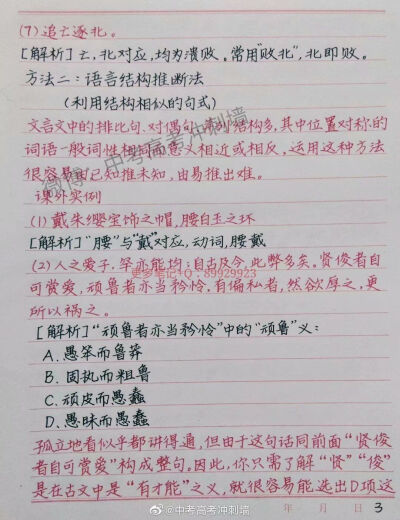 (7) 追亡逐北。
[解析] 亡,北对应,均为溃败。常用"败北",北即败。
方法二:语言结构推断法
(利用结构相似的句式)
文言文中的排比句、对偶句、并列结构多,其中位置对称的
词语一般词性相同而意义相近或相反,运用这种方法
很容易由已知推未知,由易推出难。
课外实例
(1) 戴朱缨宝饰之帽,腰白玉之环
[解析]"腰"与"戴"对应,动词,腰戴
(2) 人之爱子,罕亦能均;自古及今,此弊多矣。贤俊者自
可赏爱,顽鲁者亦当矜怜,有偏私者,虽欲厚之,更
所以祸之。
[解析]"顽鲁者亦当矜怜"中的"顽鲁"义:
A. 愚笨而鲁莽
B. 固执而粗鲁
C. 顽皮而愚蠢
D. 愚昧而愚蠢
孤立地看似乎都讲得通,但由于这句话同前面"贤俊
者自可赏爱"构成整句。因此,你只需了解"贤""俊"
是在古文中是"有才能"之义,就很容易能选出D项这
年 月 日 3
微博:中考高考冲刺墙
更多笔记+Q:89929923
@中考高考冲刺墙